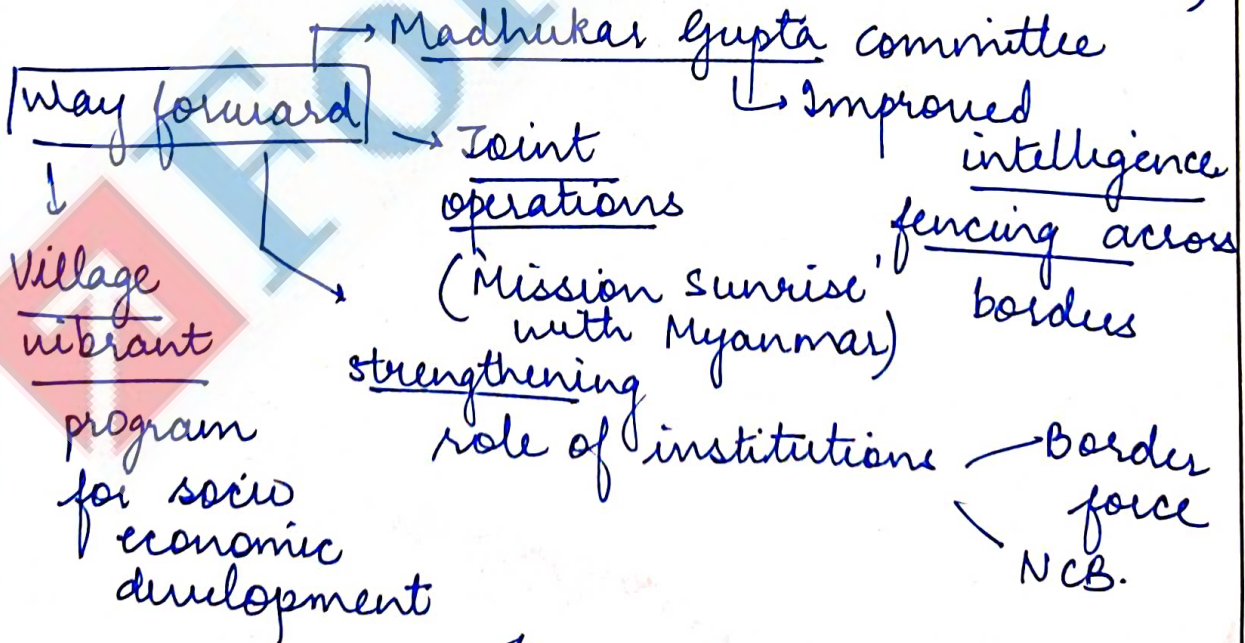 Madhukar Gupta committee
Way forward
Improved
intelligence
fencing across
borders
Joint
operations
(Mission Sunrise'
with Myanmar)
Village
vibrant
program
for socio
economic
development
strengthening
role of institutions
Border
force
NCB.